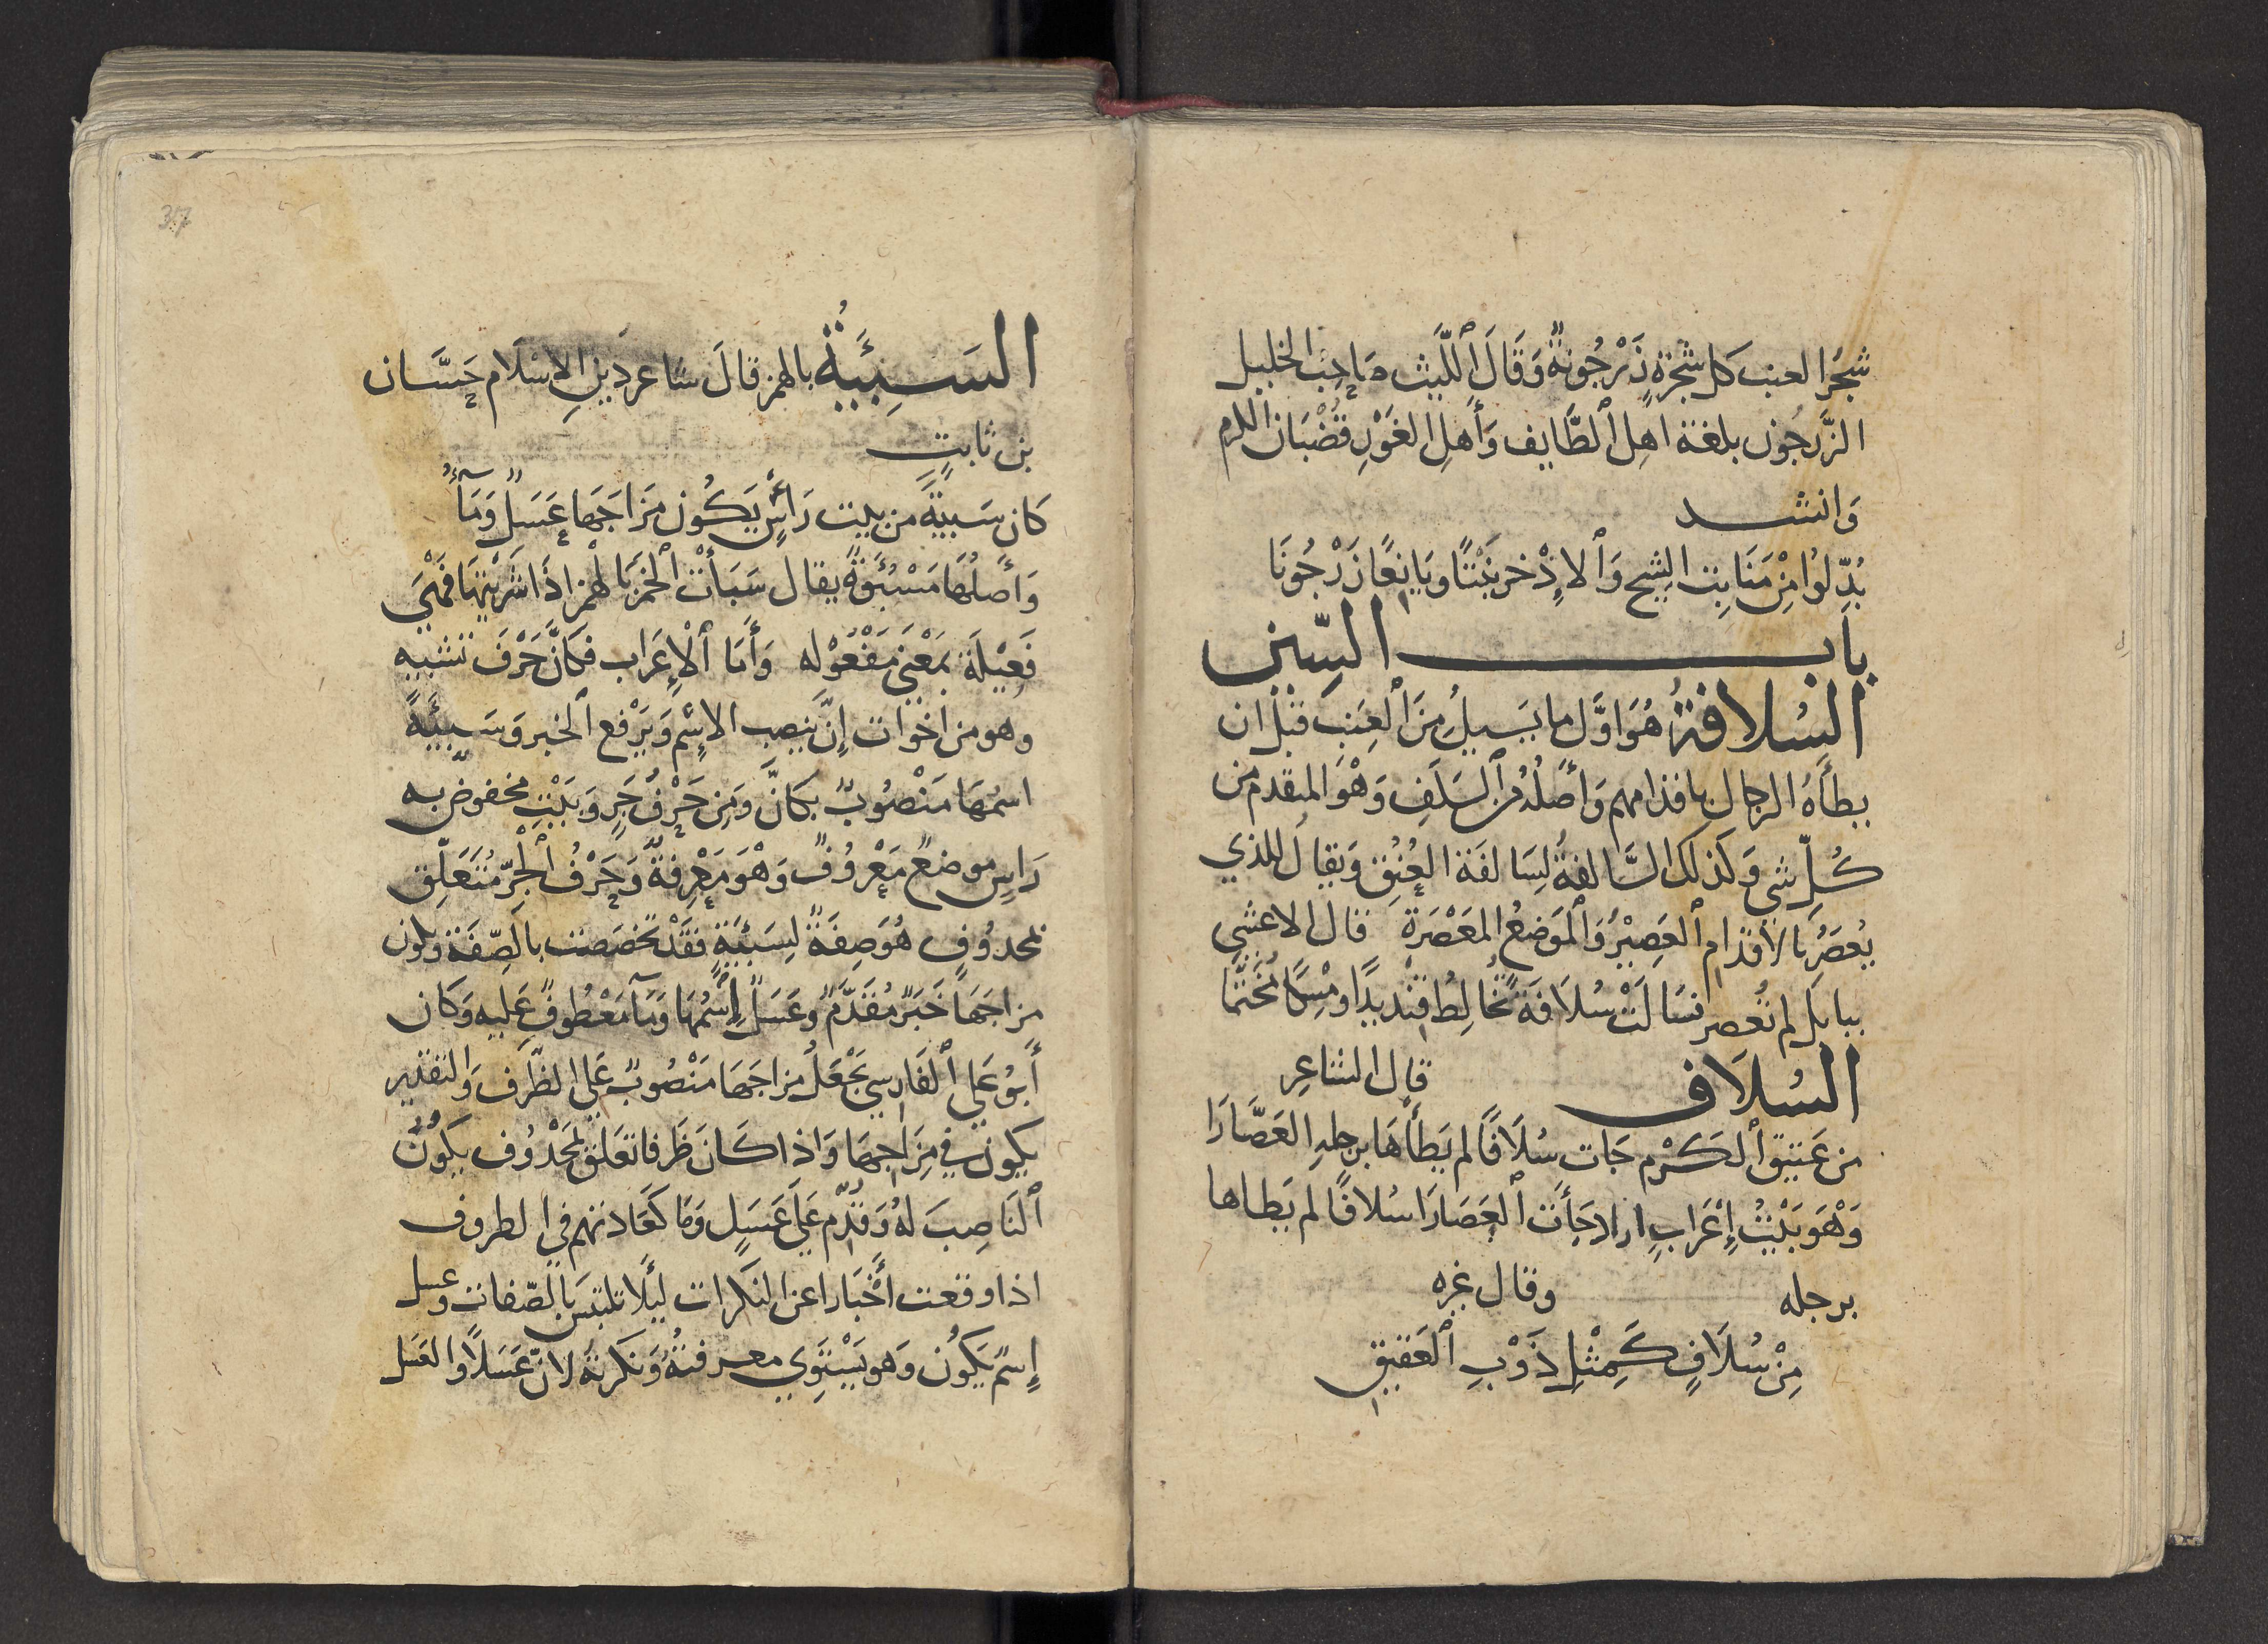 شجر العنب كل شجرة زَرْجُونةٌ وَقَالَ اللَّيث صَاحِبُ الخليل
الزَّرجُون بلغة اهل الطَّايف وَأَهلِ الغَوْرِ قُضْبَان الكرم
وَانشد
بُدِّلُوا مِنْ مَنَابِت الشِيح وَالاِذْخر تَيْنًا ويَانِعًا زَرْجُونَا
باب السِّين
السُلافةُ هُوَ اوَّل ما يَسِيلُ مِنَ العِنَب قبْل ان
يطأَهُ الرجال باقدامهم وَأَصلُهُ من السَلَفِ وَهْوَ المتقدم من
كُلِّ شي وَكذلك السَّالفةُ لِسَالفَة العُنُقِ وَيقال للذي
يُعصَرُ بالأقدام العَصِيْرُ وَالمَوَضعُ المَعْصَرَة قال الاعشي
ببابل لم تُعصر فسَالَتْ سُلاَفَةً تُخَالِطُ قِنْديدًا ومِسْكًا مُخَتَّمَا
السُلاَف قال الشاعِر
من عَتيق الكَرْم جَات سُلاَفًا لم يَطأهَا برجلهِ العَصَّارَا
وَهْوَ بَيْتُ إِعْرَابٍ اراد جَأَت العَصَارَا سُلافًا لم يَطاها
برجله وقال غيره
مِنْ سُلاَفٍ كَمِثْلِ ذَوْبِ العَقيقِ
317
السَبِيْئَةُ بالهمز قالَ شاعر دَينِ الاِسْلام حَسَّان
بن ثابتٍ
كَان سَبيْةً من بيت رَأسٍ يَكُون مَزَاجَهَا عَسَلٌ وَمَآءٌ
وَأَصلُهَا مَسْبُئَوْةٌ يقال سَبَأْتُ الخمرَ بالهمز اذَا شَرَيْتَهَا فَهْيَ
فَعِيْلَة بمَعْنَي مَفْعُوْلِه وَأَمَا الإِعَراب فكَانَّ حَرْفَ تشبيه
وهو من اخوات إِنَّ ينصِبُ الاِسْم وَيَرْفع الخبر وَسَبيئَةً
اسمُها مَنْصُوبٌ بكَانَّ وَمِن حَرْفُ جَرٍ وَبَيْتٍ مخفوضٌ به
رَاسٍ موضعٌ مَعْرُوفٌ وَهْوَ مَعْرِفةٌ وَحَرْفُ الجرِّ مُتَعَلِّق
بمحذُوفٍ هُوَ صِفَةٌ لِسَبيْئَةٍ فقَدْ تخصَصت بالصِّفَة ويكون
مزاجَهَا خَبَرٌ مُقَدَّمٌ وعَسَلٌ إِسْمُهَا وَمَآ مَعْطُوفٌ عَليه وَكَان
أَبُو عَلي الفَارسي يَجْعَلُ مزاجَهَا مَنْصُوبٌ عَلي الظَرف وَالتقدير
يكون في مِزَاجِهَا وَاذا كَانَ ظَرفا تعَلق بمَحْذُوف يكُونُ
النَاصِبَ لهُ وَقدّم عَلَي عَسَلٍ وَمَا كَعَادتهم في الظروف
اذا وقعت أَخْبَارا عن النكرات لِئَلا تلتبس بالصّفات وعسل
إِسْمُ يَكوُن وَهو يَسْتَوِي معرفتُهُ وَنكرتهُ لانَّ عَسَلاً والعَسَل